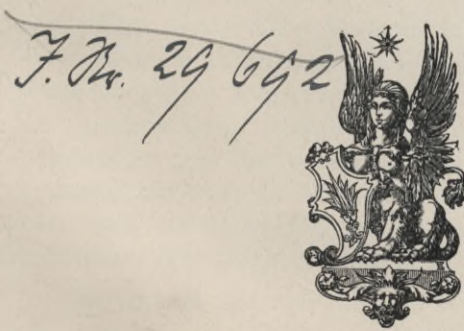 J. Nr. 29 692